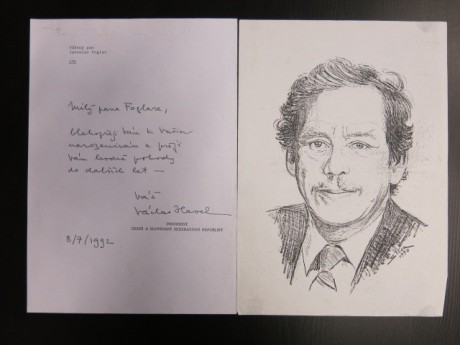 Vážený pan
Jaroslav Foglar
Milý pane Foglare,
blahopřeji Vám k Vašim
narozeninám a přeji
Vám hodně pohody
do dalších let –
Váš
Václav Havel
PREZIDENT
ČESKÉ A SLOVENSKÉ FEDERATIVNÍ REPUBLIKY
8/7/1992